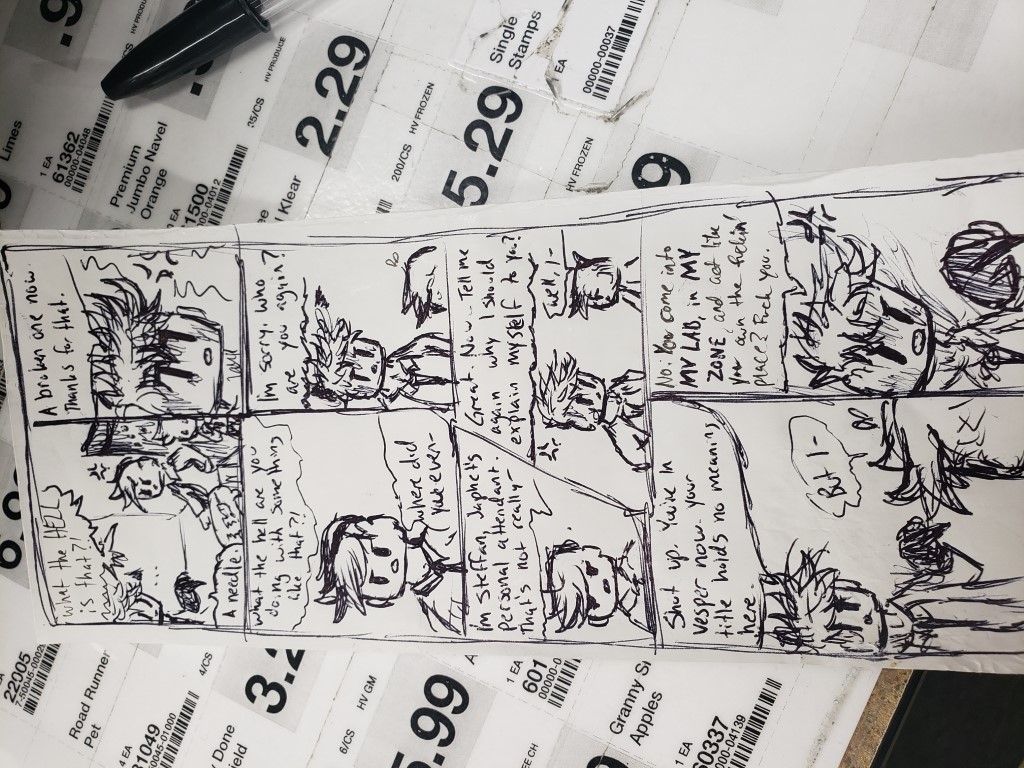 What the HELL
is that?!
...
A needle.
A broken one now.
Thanks for that.
What the hell are you
doing with something
like that?!
Where did
you even-
I'm sorry. Who
are you again?
I'm Steffan, Japhet's
personal attendant.
That's not really-
Great. Now.. Tell me
again why I should
explain myself to you?
Well, I-
Shut up. You're in
Vesper now. Your
title holds no meaning
here.
But I-
No. You come into
MY LAB, in MY
ZONE, and act like
you own the fuckin'
place? Fuck you.
22005
7-50045-0002
Road Runner
Pet
4 EA
31049
50045-01000
4/CS
y Done
ield
3.2
6/CS HV GM
5.99
1 EA
601
00000-0
EE CH
Granny S
Apples
1 EA
60337
00000-04139
6.9
Limes
1 EA
61362
00000-04048
.9
CS HV PRODU
Premium
Jumbo Navel
Orange
1 EA
61500
00000-04012
35/CS HV PRODUCE
ee
Klear
2.29
200/CS HV FROZEN
5.29
Single
Stamps
1 EA
00000-00037
HV FROZEN
9